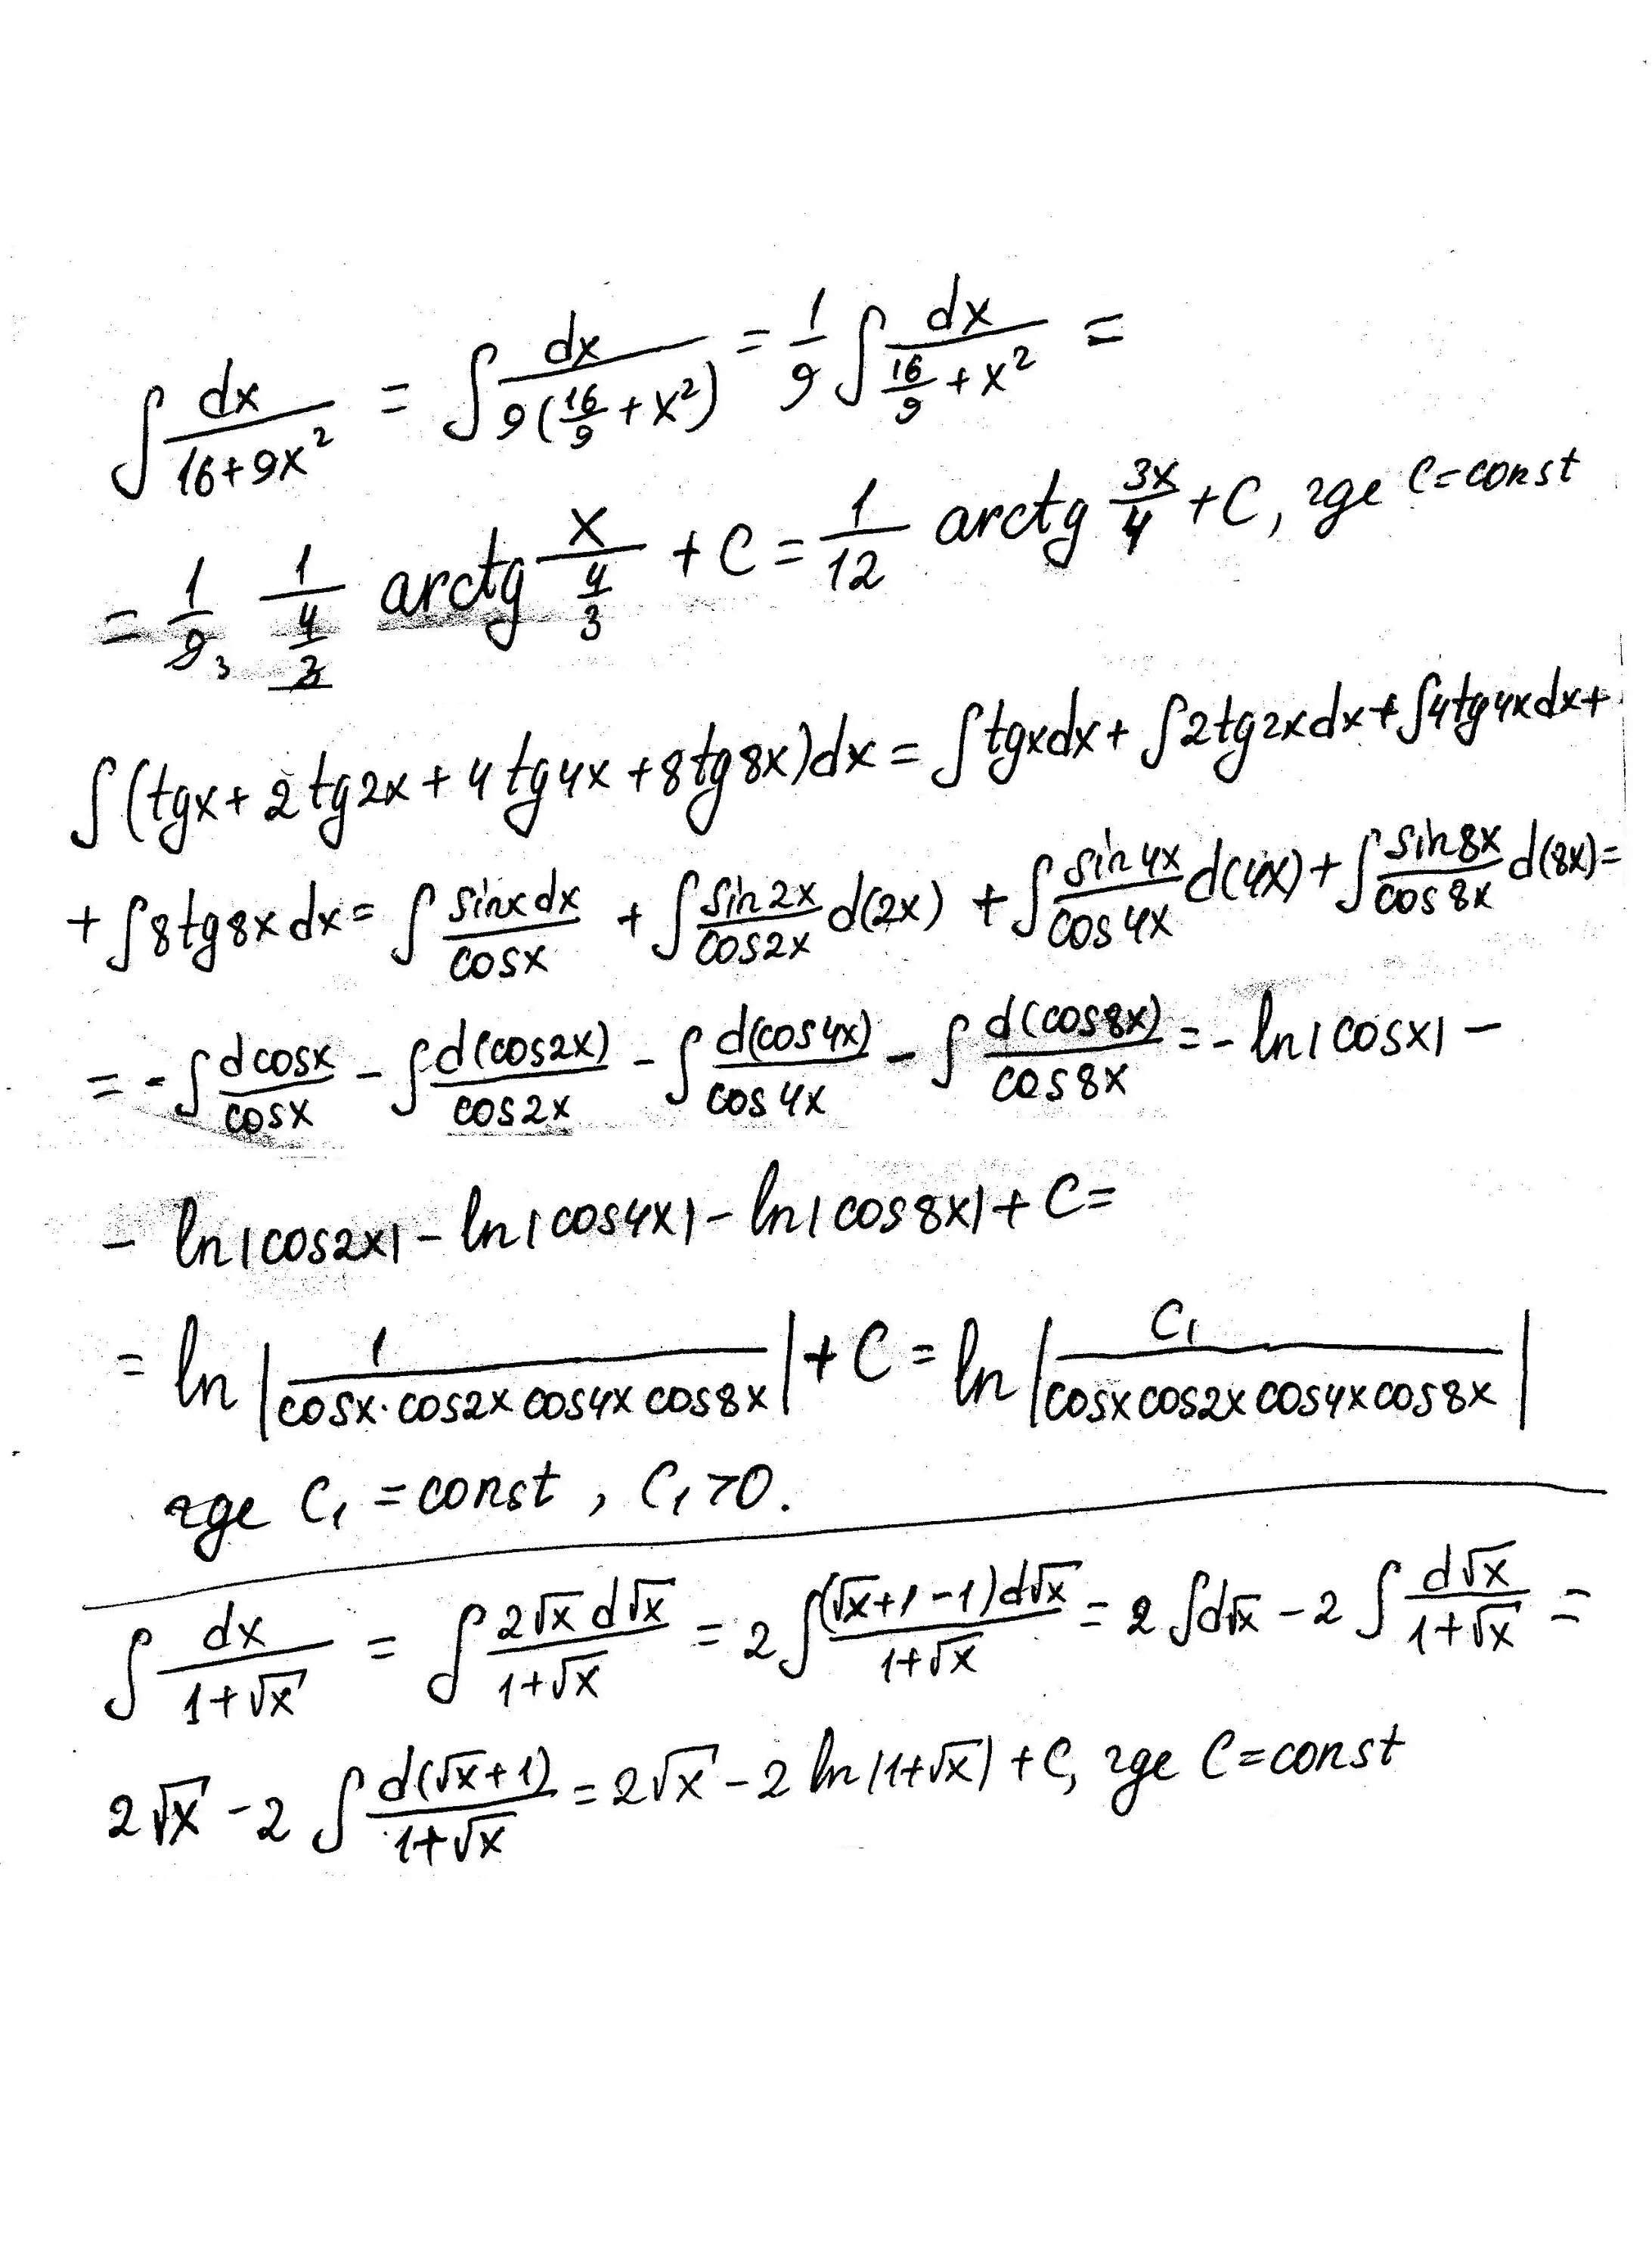 ∫ dx/(16+9x²) = ∫ dx/(9(16/9+x²)) = 1/9 ∫ dx/(16/9+x²) =
= 1/9 1/(4/3) arctg x/(4/3) + C = 1/12 arctg 3x/4 + C, где C=const
∫(tgx+2tg2x+4tg4x+8tg8x)dx = ∫tgxdx+∫2tg2xdx+∫4tg4xdx+
+∫8tg8xdx= ∫ sinxdx/cosx + ∫ sin2x/cos2x d(2x) + ∫ sin4x/cos4x d(4x)+∫ sin8x/cos8x d(8x)=
= -∫ dcosx/cosx - ∫ d(cos2x)/cos2x - ∫ d(cos4x)/cos4x - ∫ d(cos8x)/cos8x = - ln|cosx| -
- ln|cos2x| - ln|cos4x| - ln|cos8x| + C =
= ln|1/(cosx·cos2x cos4x cos8x)| + C = ln|C₁/(cosxcos2xcos4xcos8x)|
где C₁ = const, C₁>0.
∫ dx/(1+√x) = ∫ 2√x d√x/(1+√x) = 2∫ (√x+1-1)d√x/(1+√x) = 2∫d√x - 2∫ d√x/(1+√x) =
2√x - 2∫ d(√x+1)/(1+√x) = 2√x - 2 ln(1+√x) + C, где C=const